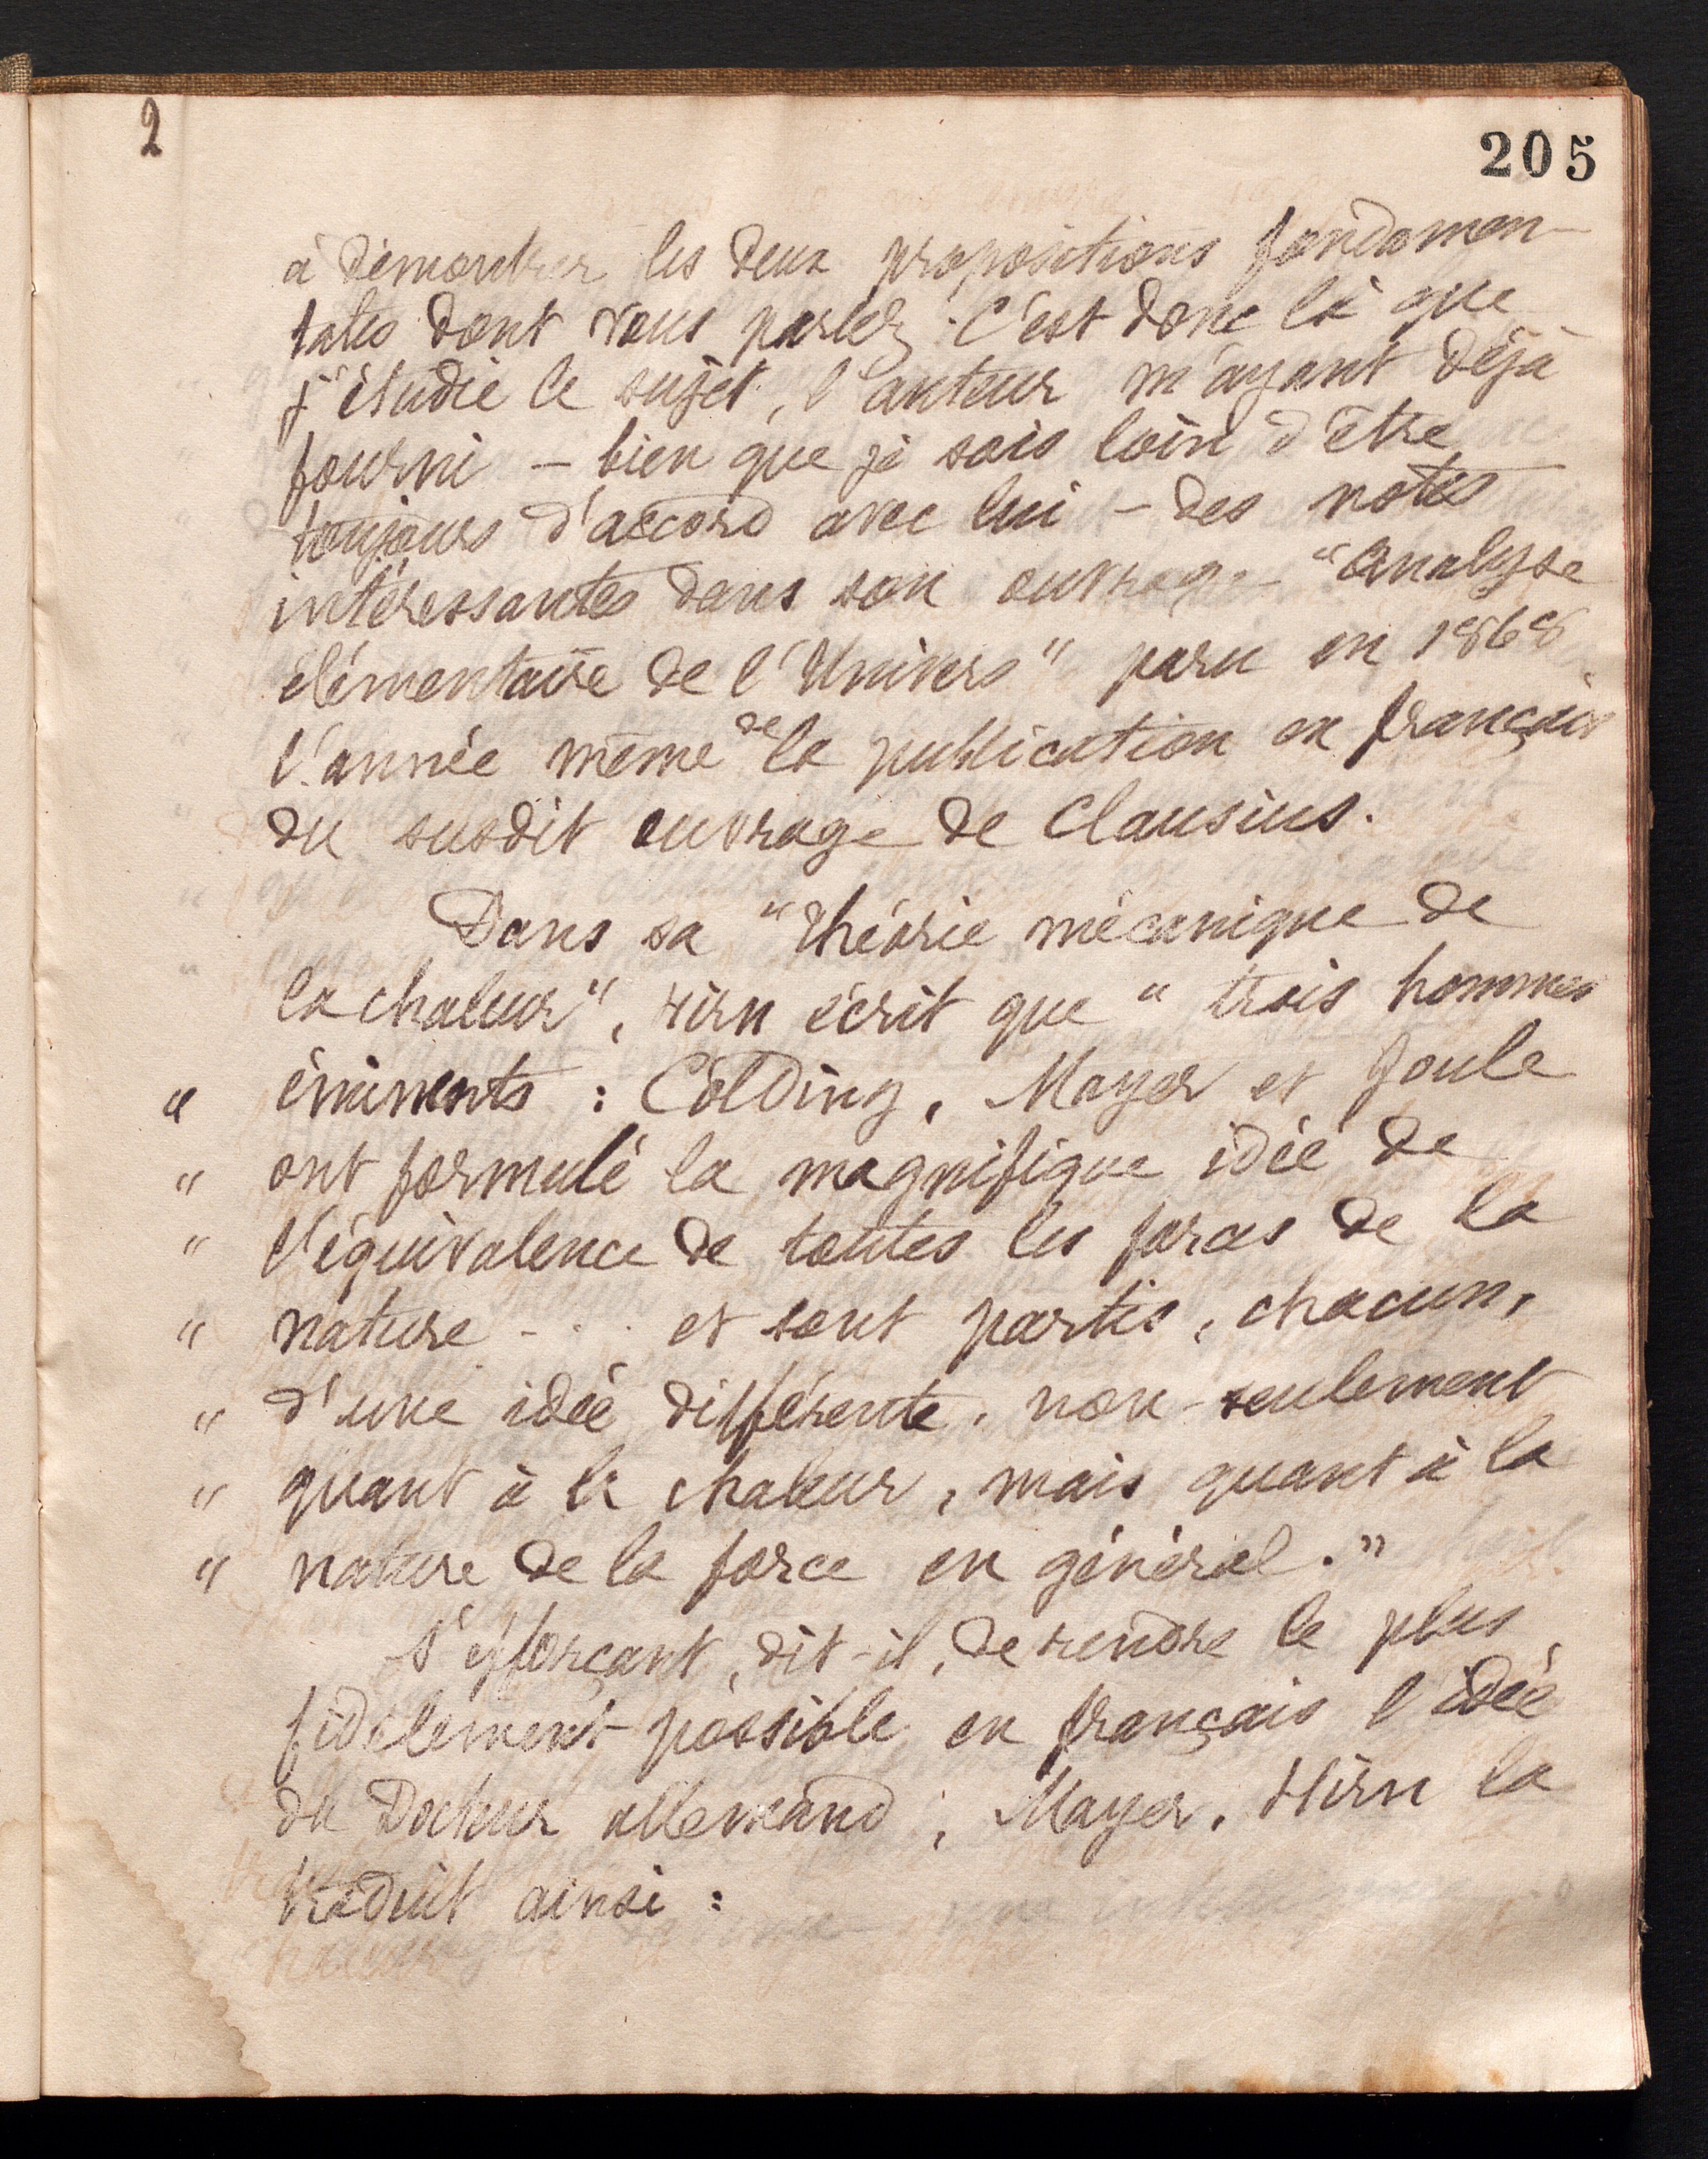 2
205
à démontrer les deux propositions fondamen-
tales dont vous parlez. C'est donc là que
j'étudie le sujet, l'auteur m'ayant déjà
fourni - bien que je sois loin d'être
toujours d'accord avec lui - des notes
intéressantes dans son ouvrage "Analyse
élémentaire de l'Univers" paru en 1868
l'année même de la publication en français
du susdit ouvrage de Clausius.
Dans sa "Théorie mécanique de
la chaleur", Hirn écrit que "trois hommes
" éminents : Colding, Mayer et Joule
" ont formulé la magnifique idée de
" l'équivalence de toutes les forces de la
" nature - . . et sont partis, chacun,
" d'une idée différente, non-seulement
" quant à la chaleur, mais quant à la
" nature de la force en général."
S'efforçant, dit-il, de rendre le plus
fidèlement possible en français l'idée
du Docteur allemand, Mayer, Hirn la
traduit ainsi :